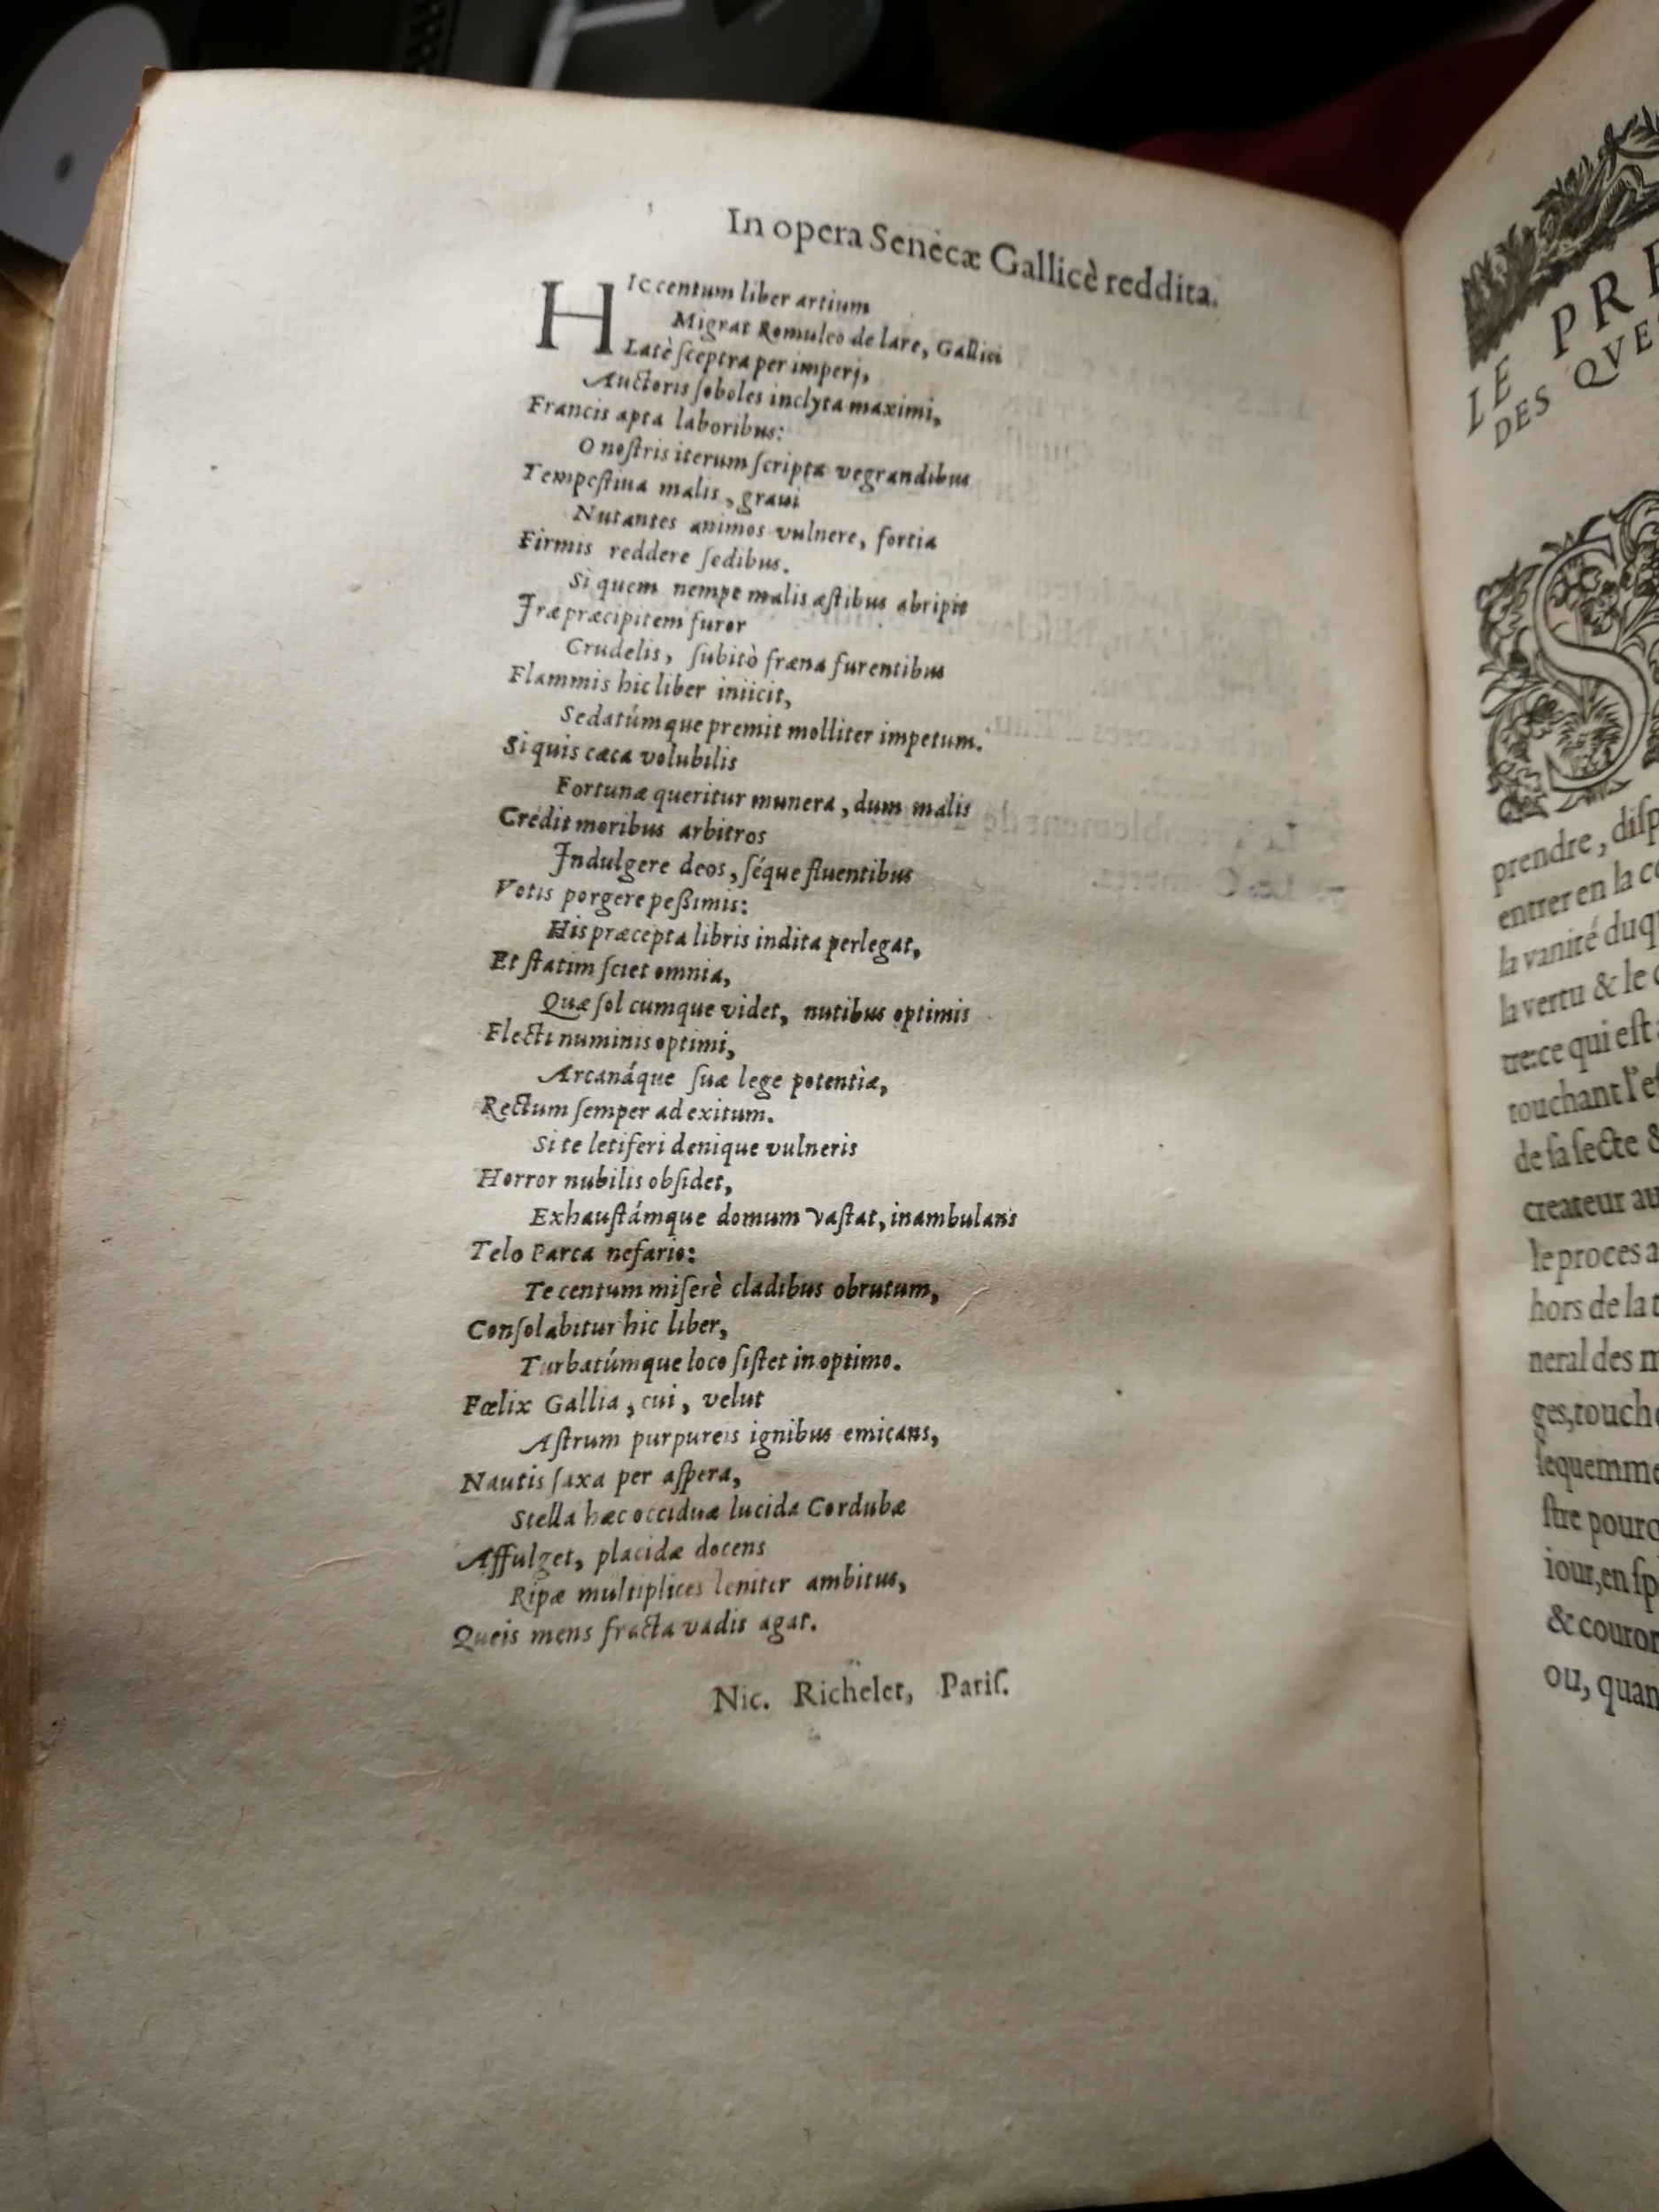 In opera Senecæ Gallicè reddita.
HIc centum liber artium
Migrat Romuleo de lare, Gallici
Latè ſceptra per imperj,
Auctoris ſoboles inclyta maximi,
Francis apta laboribus:
O noſtris iterum ſcripta vegrandibus
Tempeſtiua malis, graui
Nutantes animos vulnere, fortia
Firmis reddere ſedibus.
Si quem nempe malis æſtibus abripit
Iræ præcipitem furor
Crudelis, ſubitò fræna furentibus
Flammis hic liber iniicit,
Sedatúmque premit molliter impetum.
Si quis cæca volubilis
Fortunæ queritur munera, dum malis
Credit moribus arbitros
Indulgere deos, ſéque fluentibus
Votis porgere peßimis:
His præcepta libris indita perlegat,
Et ſtatim ſciet omnia,
Quæ ſol cumque videt, nutibus optimis
Flecti numinis optimi,
Arcanáque ſuæ lege potentiæ,
Rectum ſemper ad exitum.
Si te letiferi denique vulneris
Horror nubilis obſidet,
Exhauſtámque domum vaſtat, inambulans
Telo Parca nefario:
Te centum miſerè cladibus obrutum,
Conſolabitur hic liber,
Turbatúmque loco ſiſtet in optimo.
Fœlix Gallia, cui, velut
Aſtrum purpureis ignibus emicans,
Nautis ſaxa per aſpera,
Stella hæc occiduæ lucida Cordubæ
Affulget, placidæ docens
Ripæ multiplices leniter ambitus,
Queis mens fracta vadis agat.
Nic. Richelet, Pariſ.
LE PRE
DES QVE
S
prendre, diſp
entrer en la c
la vanité duq
la vertu & le
tre: ce qui eſt
touchant l'eſ
de ſa ſecte &
createur au
le proces a
hors de la t
neral des m
ges, touch
ſequemme
ſtre pourq
iour, en ſp
& couron
ou, quan